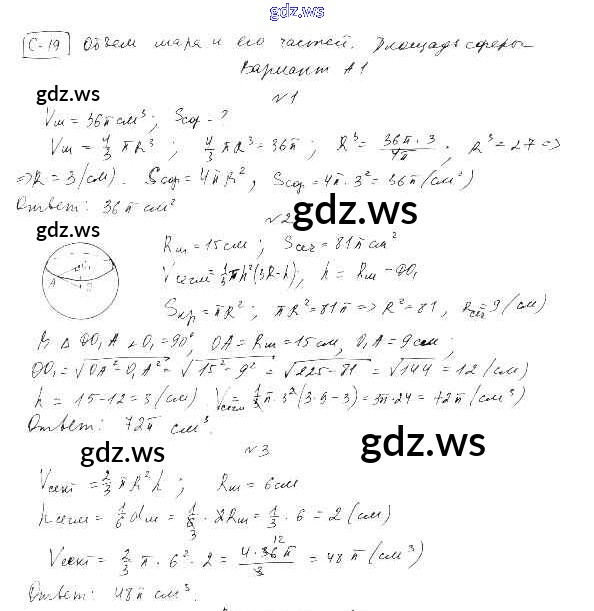 gdz.ws
С-19 Объем шара и его частей. Площадь сферы
Вариант А1
gdz.ws
№1
Vш = 36π см³; Sсф - ?
Vш = 4/3 πR³; 4/3 πR³ = 36π; R³ = 36π·3/4π; R³ = 27 =>
=> R = 3 (см). Sсф = 4πR², Sсф = 4π·3² = 36π (см²)
Ответ: 36π см²
gdz.ws
№2
gdz.ws
Rш = 15 см; Sсеч = 81π см²
Vсегм = 1/3 πh²(3R-h); h = Rш - OO₁
Sкр = πR²; πR² = 81π => R² = 81, Rсеч = 9 (см)
В Δ OO₁A ∠O₁ = 90°, OA = Rш = 15 см, O₁A = 9 см;
OO₁ = √OA²-O₁A² = √15²-9² = √225-81 = √144 = 12 (см)
h = 15-12 = 3 (см) Vсегм = 1/3 π·3²(3·9-3) = 3π·24 = 72π (см³)
Ответ: 72π см³.
gdz.ws
№3
gdz.ws
Vсект = 2/3 πR²h; Rш = 6 см
hсегм = 1/6 dш = 1/6 · 2Rш = 1/3 · 6 = 2 (см)
Vсект = 2/3 π · 6² · 2 = 4·36π/3 = 48π (см³)
Ответ: 48π см³.
gdz.ws